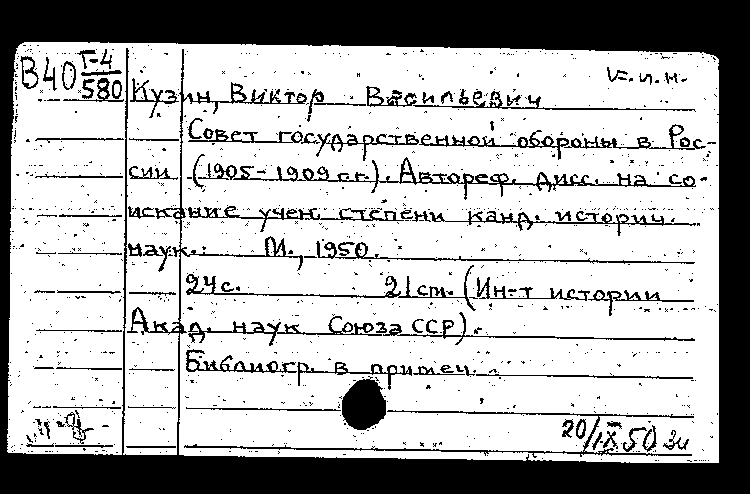 В40 Г-4/580
Кузин, Виктор Васильевич
Совет государственной обороны в Рос-
сии (1905-1909 г.г.). Автореф. дисс. на со-
искание учен. степени канд. историч.
наук. М., 1950.
24с. 21см. (Ин-т истории
Акад. наук Союза ССР).
Библиогр. в примеч.
20/IX 50